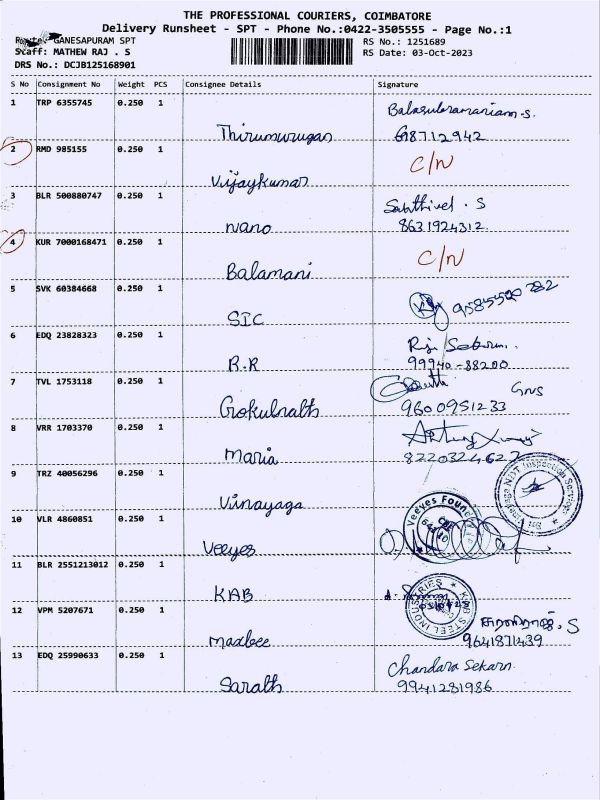 THE PROFESSIONAL COURIERS, COIMBATORE
Delivery Runsheet - SPT - Phone No.:0422-3505555 - Page No.:1
GANESAPURAM SPT
RS No.: 1251689
Staff: MATHEW RAJ . S
RS Date: 03-Oct-2023
DRS No.: DCJB125168901
S No Consignment No Weight PCS Consignee Details Signature
1 TRP 6355745 0.250 1 Balasubramaniam.S.
Thirumurugan 8712942
2 RMD 985155 0.250 1 C/N
Vijaykumar
3 BLR 500880747 0.250 1 Sakthivel . S
nano 8631924312
4 KUR 7000168471 0.250 1 C/N
Balamani
5 SVK 60384668 0.250 1
SIC
6 EDQ 23828323 0.250 1
R.R 99940-88200
7 TVL 1753118 0.250 1 GNS
Gokulnath 9600951233
8 VRR 1703370 0.250 1
Maria 8220324627
9 TRZ 40056296 0.250 1 NDT Inspection Services
Vinayaga
10 VLR 4860851 0.250 1 Veeyes
Veeyes
11 BLR 2551213012 0.250 1
KAB KAB STEEL INDUSTRIES
12 VPM 5207671 0.250 1
Maxbee 9641871439
13 EDQ 25990633 0.250 1 Chandara Sekarn.
Sarath 9941281986